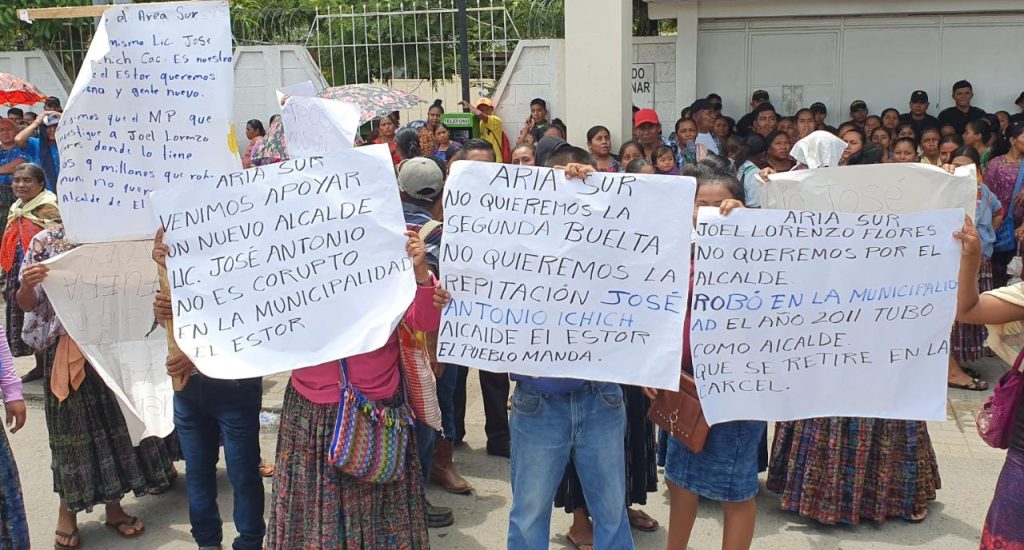 el Area Sur
mismo Lic. José
Ichich Cac. Es nuestro
El Estor queremos
y gente nuevo.
que el MP que
a Joel Lorenzo
donde lo tiene
9 millones que
que
Alcalde de El
ARIA SUR
VENIMOS APOYAR
UN NUEVO ALCALDE
LIC. JOSÉ ANTONIO
NO ES CORUPTO
EN LA MUNICIPALIDAD
EL ESTOR
ARIA SUR
NO QUIEREMOS LA
SEGUNDA BUELTA
NO QUIEREMOS LA
REPITACIÓN JOSÉ
ANTONIO ICHICH
ALCAIDE El ESTOR
EL PUEBLO MANDA.
JOSÉ
ARIA SUR
JOEL LORENZO FLORES
NO QUEREMOS POR EL
ALCALDE.
ROBÓ EN LA MUNICIPALID
AD EL AÑO 2011 TUBO
COMO ALCALDE.
QUE SE RETIRE EN LA
CARCEL.